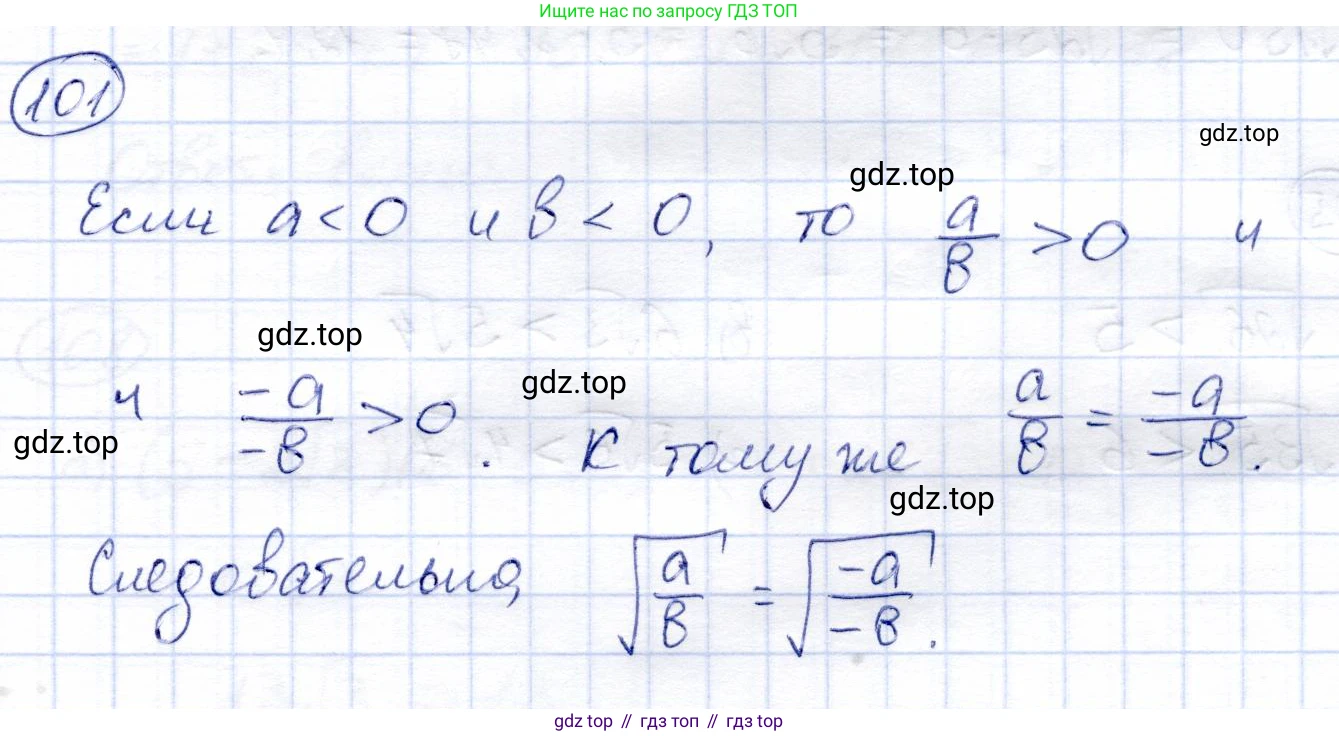 Ищите нас по запросу ГДЗ ТОП
101
gdz.top
gdz.top
Если a < 0 и b < 0, то a/b > 0 и
gdz.top
и -a/-b > 0. К тому же a/b = -a/-b.
gdz.top
gdz.top
gdz.top
Следовательно, √(a/b) = √(-a/-b).
gdz top // гдз топ // гдз top